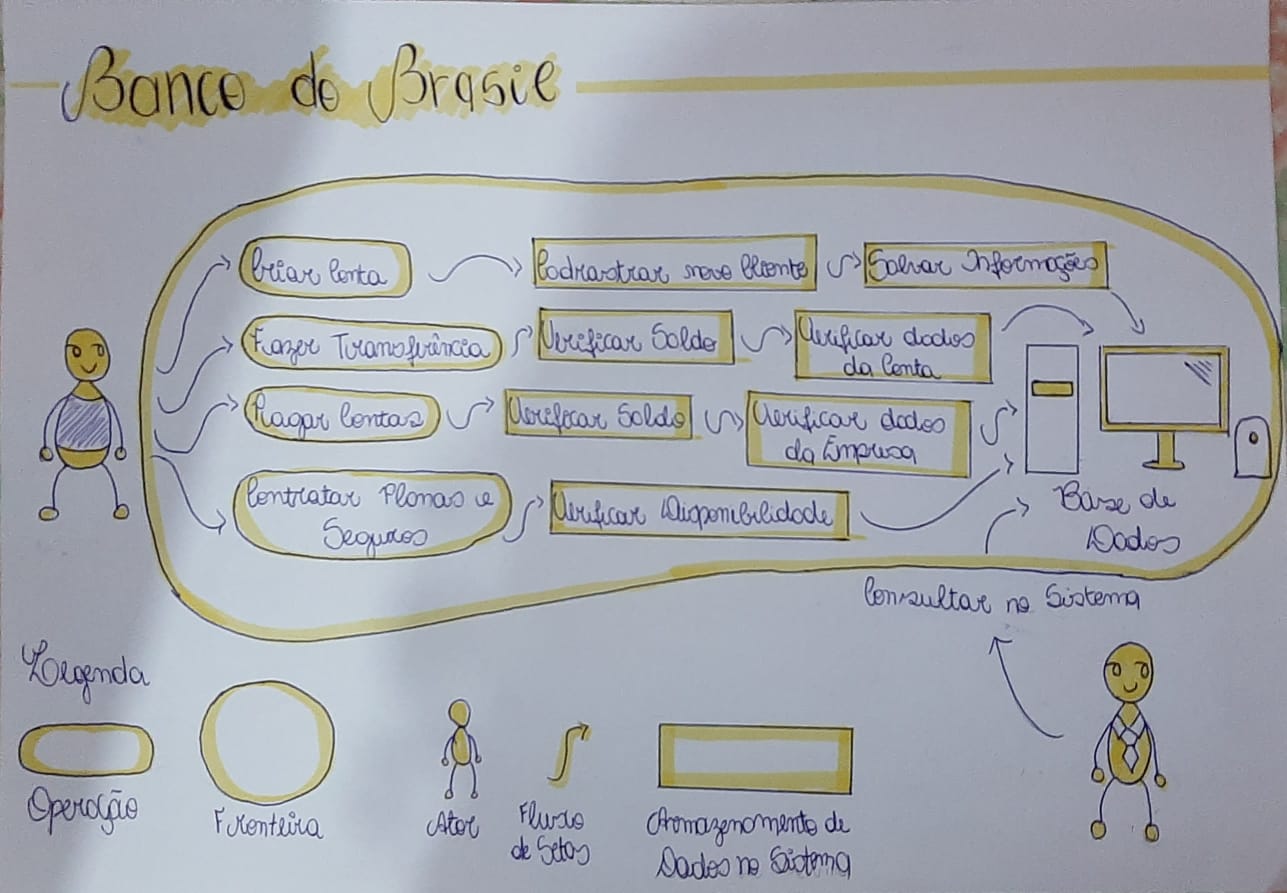 Banco do Brasil
Criar Conta
Cadrastrar novo Cliente
Salvar Informações
Fazer Transfirência
Verificar Saldo
Verificar dados
da Conta
Pagar Contas
Verificar Saldo
Verificar dados
da Empresa
Contratar Planos e
Seguros
Verificar Disponibilidade
Base de
Dados
Consultar no Sistema
Legenda
Operação
Fronteira
Ator
Fluxo
de Setas
Armazenamento de
Dados no Sistema